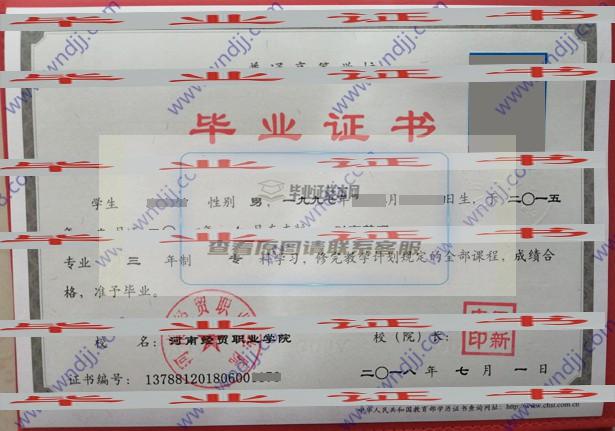 毕业证书
www.wndjj.com
毕业证书
毕业证书
学生 性别 男，一九九七年 月 日生，于二〇一五
毕业证样本网
毕业证书
查看原图请联系客服
专业 三 年制 专 科学习，修完教学计划规定的全部课程，成绩合
格，准予毕业。
毕业证书
校 名：河南经贸职业学院 校（院）长：
印新
证书编号：13788120180600
二〇一八年 七月 一日
毕业证书
中华人民共和国教育部学历证书查询网址：http://www.chsi.com.cn